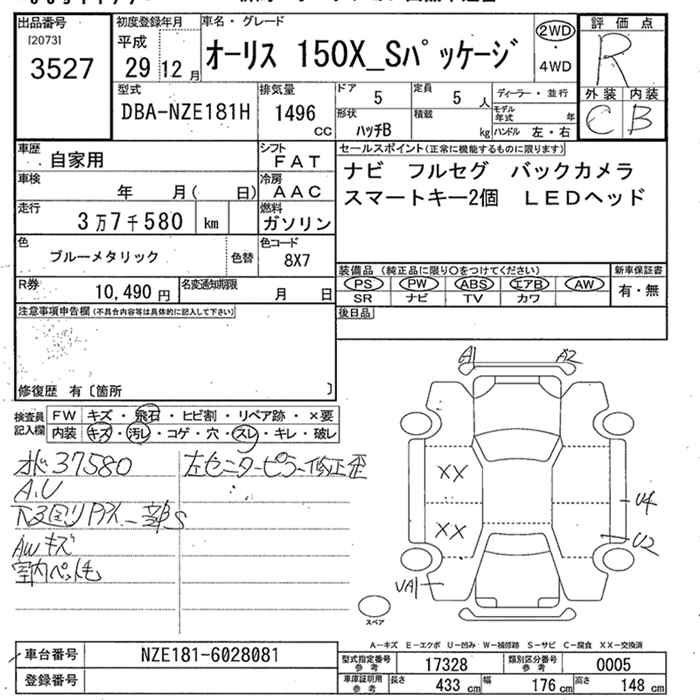 出品番号
[2073]
3527
初度登録年月
平成
29 12月
車名・グレード
オーリス 150X_Sパッケージ
2WD
・
4WD
評価点
R
外装 内装
C B
型式
DBA-NZE181H
排気量
1496
CC
ドア
5
定員
5 人
形状
ハッチB
積載
kg
ディーラー・並行
モデル年式 年
ハンドル 左・右
車歴
自家用
シフト
FAT
車検
年 月( 日)
冷房
AAC
走行
3万7千580 km
燃料
ガソリン
色
ブルーメタリック
色替
色コード
8X7
R券
10,490円
名変通知期限
月 日
セールスポイント(正常に機能するものに限ります)
ナビ フルセグ バックカメラ
スマートキー2個 LEDヘッド
装備品(純正品に限り○をつけてください)
PS PW ABS エアB AW
SR ナビ TV カワ
新車保証書
有・無
後日品
注意事項申告欄(不具合内容等は具体的に記入して下さい)
修復歴 有〔箇所 〕
検査員記入欄
FW キズ・飛石・ヒビ割・リペア跡・×要
内装 キズ・汚レ・コゲ・穴・スレ・キレ・破レ
37580
左センターピラー修正歪
A.U
下廻り
AWキズ
室内ペット毛
A1
A2
XX
XX
U4
U2
UA1
スペア
A-キズ E-エクボ U-凹み W-補修跡 S-サビ C-腐食 XX-交換済
車台番号
NZE181-6028081
登録番号
型式指定番号参考
17328
類別区分番号参考
0005
車庫証明用参考
長さ 433 cm
幅 176 cm
高さ 148 cm